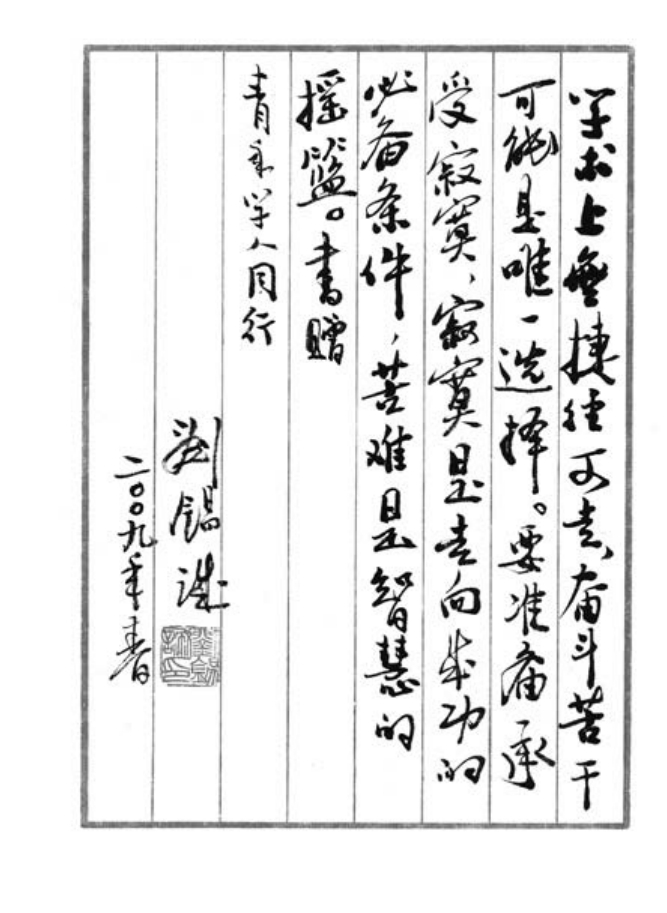 学术上无捷径可走,奋斗苦干
可能是唯一选择。要准备承
受寂寞,寂寞是走向成功的
必备条件,苦难是智慧的
摇篮。书赠
青年学人同行
刘锡诚
二〇〇九年春